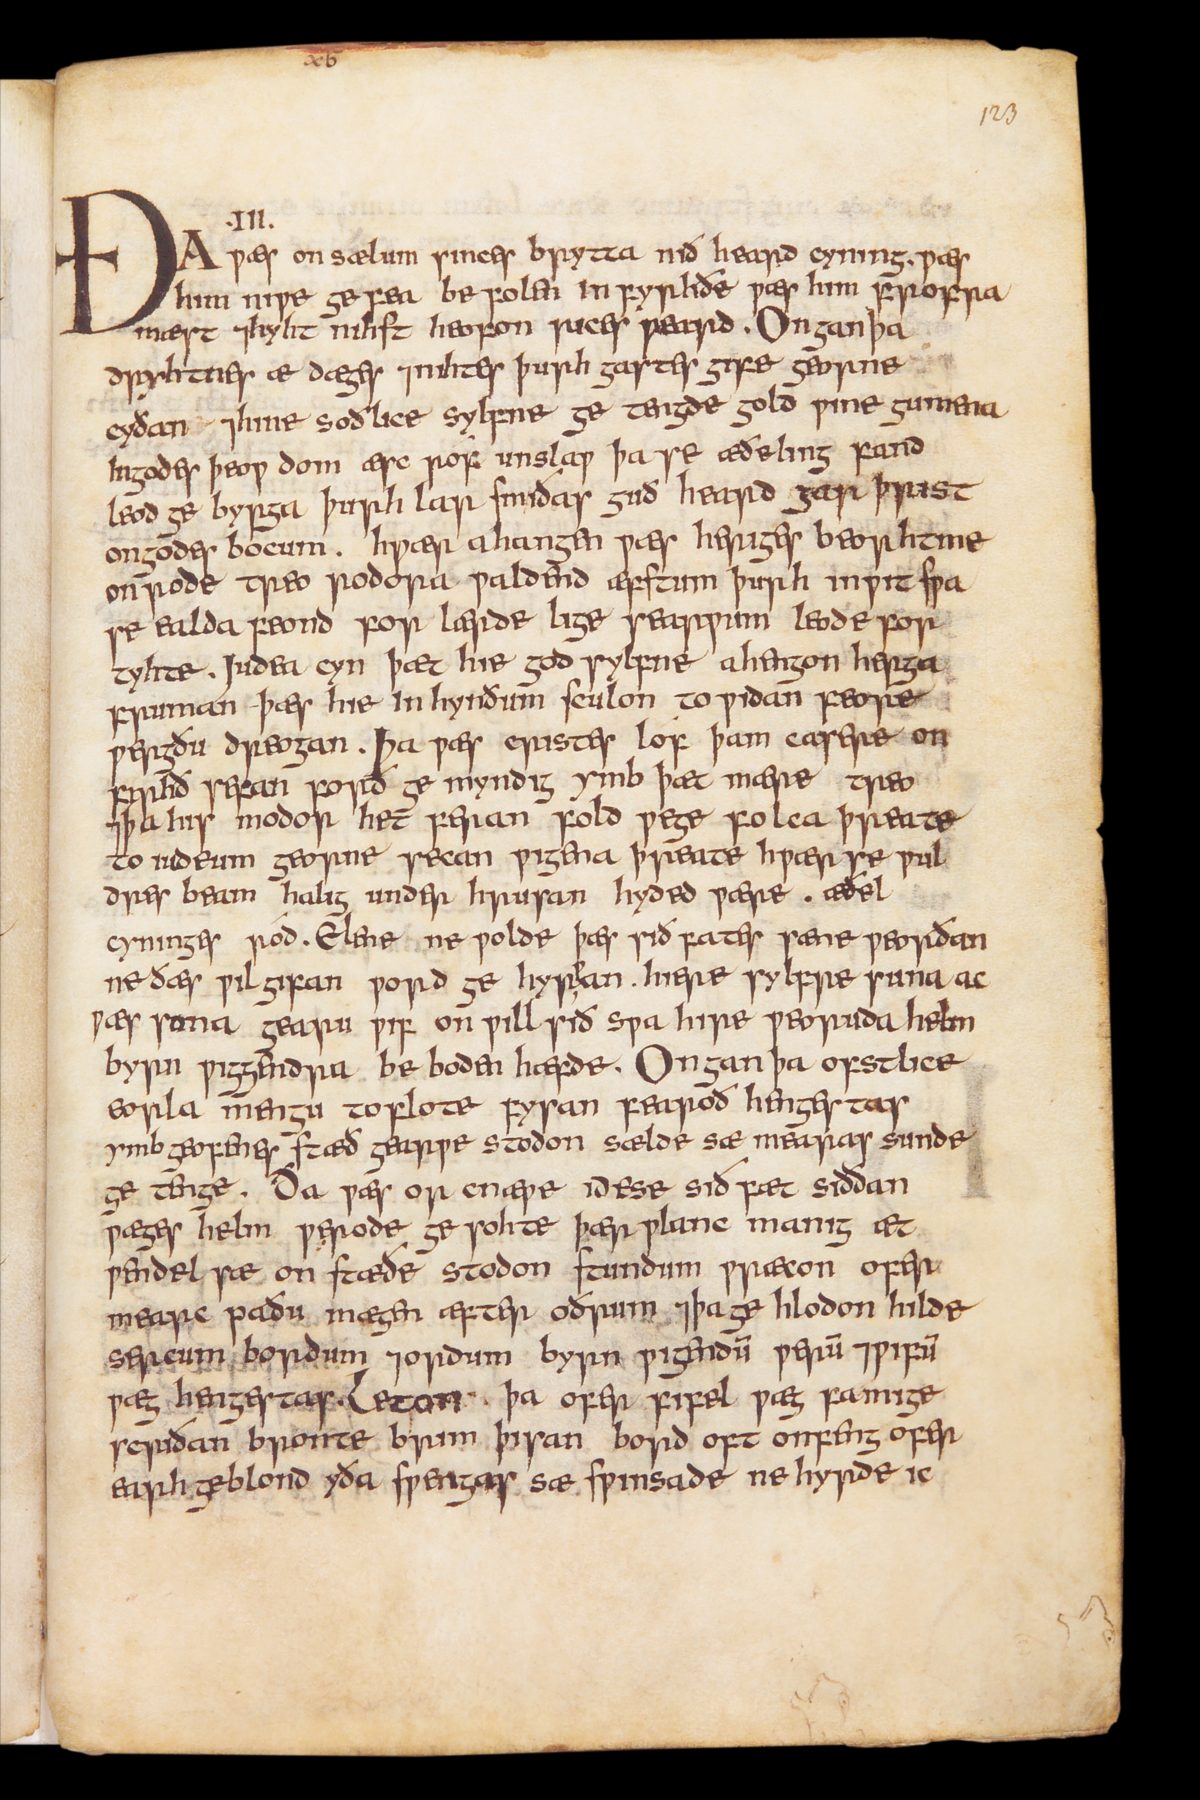 xb
123
·III·
ÐA ƿæs on sælum sinces brytta nið heard cyning. ƿæs
him niƿe ge fea be folen in fyrhðe ƿæs him frofra
mæst ⁊hyht nihst heofon rices ƿeard. Ongan þa
dryhtnes æ dæges ⁊nihtes þurh gastes gife georne
cyðan ⁊hine soðlice sylfne ge tengde gold ƿine gumena
in godes þeoƿ dom æsc rof unslaƿ þa se æðeling fand
leod ge byrga þurh lar smiðas guð heard gar þrist
on godes bocum. hƿær ahangen ƿæs heriges beorhtme
on rode treo rodora ƿaldend æfstum þurh inƿit sƿa
se ealda feond for lærde lige searƿum leode for
tyhte. Iudea cyn þæt hie god sylfne ahengon herga
fruman þæs hie in hynðum sculon to ƿidan feore
ƿergðu dreogan. Þa ƿæs cristes lof þam casere on
firhð sefan forð ge myndig ymb þæt mære treo
⁊þa his modor het feran fold ƿege folca þreate
to iudeum georne secan ƿigena þreate hƿær se ƿul
dres beam halig under hrusan hyded ƿære. æðel
cyninges rod. Elene ne ƿolde þæs sið fates sæne ƿeorðan
ne ðæs ƿil gifan ƿord ge hyrƿan. hiere sylfre suna ac
ƿæs sona gearu ƿif on ƿill sið sƿa hire ƿeoruda helm
byrn ƿiggendra be boden hæfde. Ongan þa ofstlice
eorla mengu toflote fysan fearoð hengestas
ymb geofenes stæð gearƿe stodon sælde sæ mearas sunde
ge tenge. Ða ƿæs or cnæƿe idese sið fæt siððan
ƿæges helm ƿerode ge sohte þær ƿlanc manig æt
ƿendel sæ on stæðe stodon stundum ƿræcon ofer
mearc ƿaðu mægen æfter oðrum ⁊þa ge hlodon hilde
sercum bordum ⁊ordum byrn ƿigendū ƿerū ⁊ƿifū
ƿæg hengestas. Leton þa ofer fifel ƿæg famige
scriðan bronte brim þisan bord oft onfeng ofer
earh geblond yða sƿengas sæ sƿinsade ne hyrde ic